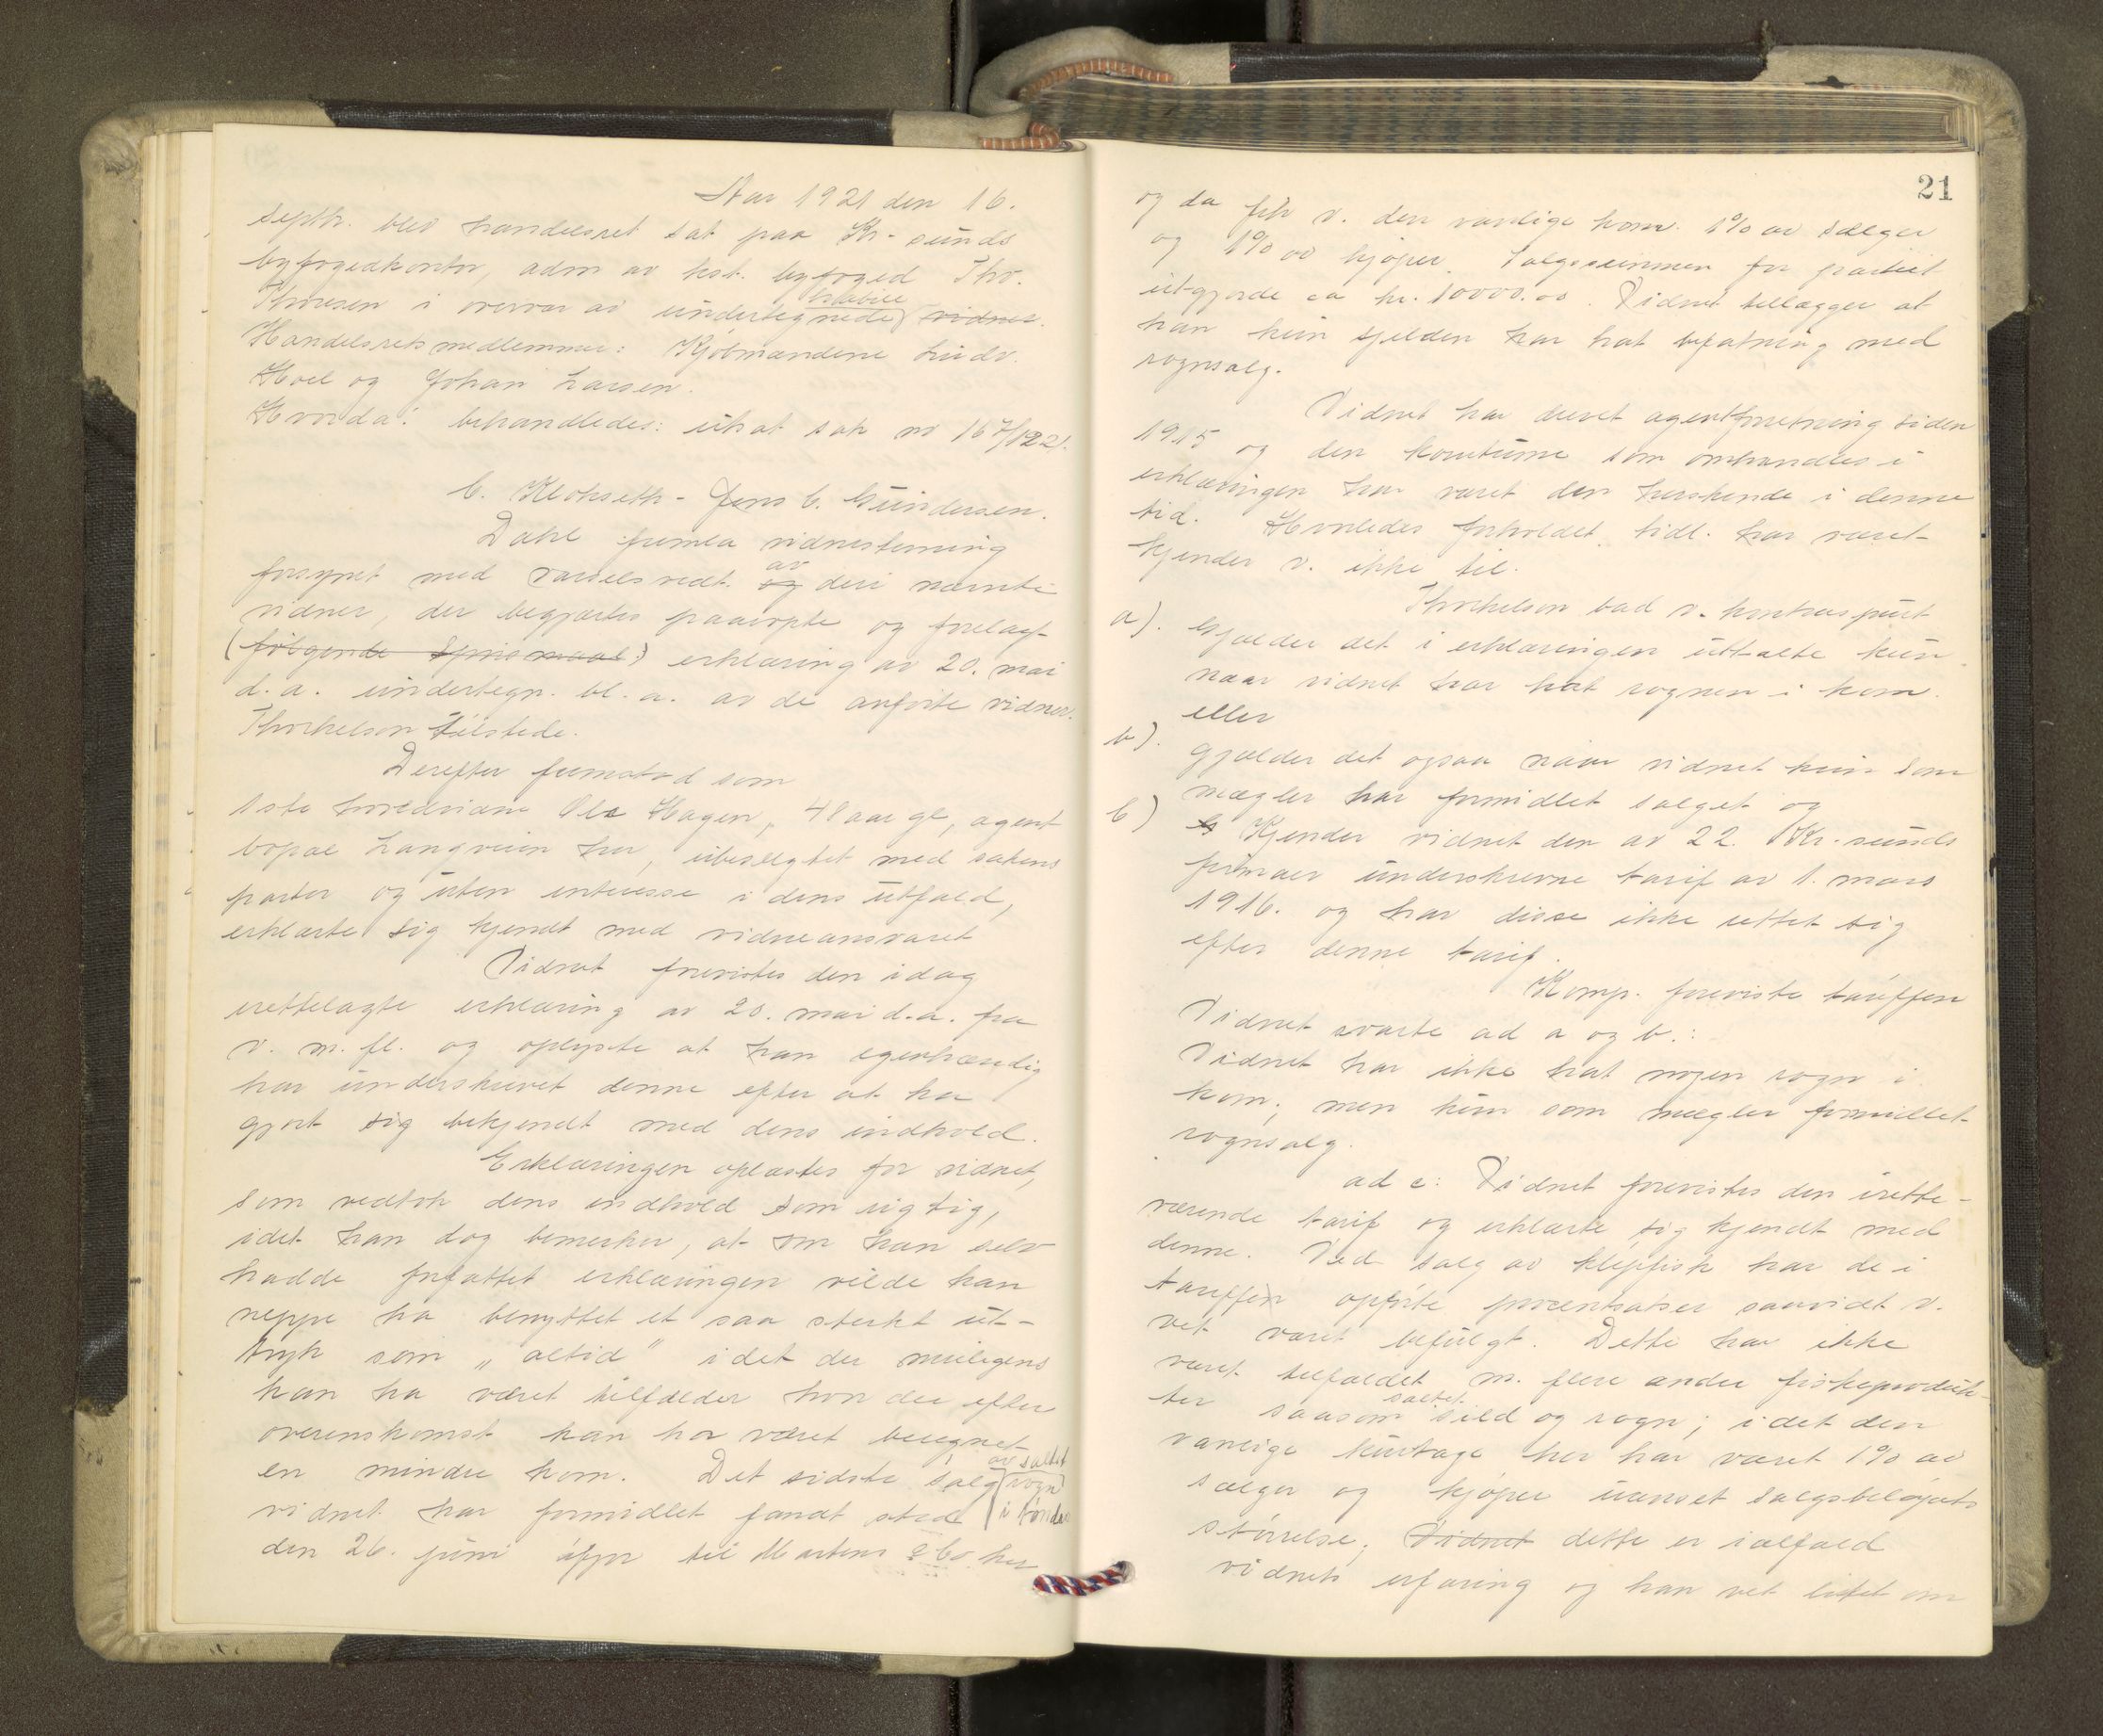 Aar 1921 den 16.
septbr. blev handelsret sat paa Kr-sunds
byfogedkontor, adm av kst. byfoged Thv.
Thoresen i overvær av undertegnede vidner.
Handelsretsmedlemmer: Kjøbmændene Ludv.
Hoel og Johan Larsen.
Hvorda: behandledes: utsat sak nr 167/1921.
C. Klokseth - Jens C. Gundersen.
Dahl fremla vidnestevning
av
forsynet med varselsvedt. og deri nævnte
vidner, der begjærtes paaropte og forelagt
(følgende spørsmaal:) erklæring av 20. mai
d.a. undertegn. bl.a. av de anførte vidner.
Thorkelson tilstede.
Derefter fremstod som
1ste hovedvidne Ola Hagen, 48 aar gl, agent
bopæl Langveien her, ubeslegtet med sakens
parter og uten interesse i dens utfald,
erklærte sig kjendt med vidneansvaret
Vidnet forevistes den idag
irettelagte erklæring av 20. mai d.a. fra
v. m. fl. og oplyste at han egenhændig
har underskrevet denne efter at ha
gjort sig bekjendt med dens indhold.
Erklæringen oplæstes for vidnet,
som vedtok dens indhold som rigtig,
idet han dog bemerker, at om han selv
hadde forfattet erklæringen vilde han
neppe ha benyttet et saa sterkt ut-
tryk som "altid" idet der muligens
kan ha været tilfælder hvor der efter
overenskomst kan ha været beregnet
en mindre kom. Det sidste salg av saltet rogn
vidnet har formidlet fandt sted i tønder
den 26. juni ifjor til Martens & Co. her
21
og da fik v. den vanlige kom. 1% av sælger
og 1% av kjøper. Salgssummen for partiet
utgjorde ca kr. 10000.00. Vidnet tillægger at
han kun sjelden har hat befatning med
rognsalg.
Vidnet har drevet agentforretning siden
1915 og den koutume som omhandles i
erklæringen har været den herskende i denne
tid. Hvorledes forholdet tidl. har været
kjender v. ikke til.
Thorkelson bad v. kontraspurt
a). Gjælder det i erklæringen uttalte kun
naar vidnet har hat rognen i kom.
eller
b). gjælder det ogsaa naar vidnet kun som
mægler har formidlet salget og
c) Kjender vidnet den av 22. Kr.-sunds
firmaer underskrevne tarif av 1. mars
1916. og har disse ikke rettet sig
efter denne tarif.
Komp. foreviste tariffen
Vidnet svarte ad a og b.:
Vidnet har ikke hat nogen rogn i
kom; men kun som mægler formidlet
rognsalg.
ad c: Vidnet forevistes den irette-
værende tarif og erklærte sig kjendt med
denne. Ved salg av klipfisk har de i
tariffen opførte procentsatser saavidt v.
vet været befulgt. Dette har ikke
været tilfældet m. flere andre fiskeproduk-
saltet
ter saasom sild og rogn; idet den
vanlige kurtage her har været 1% av
sælger og kjøper uanset salgsbeløpets
størrelse; Vidnet dette er ialfald
vidnets erfaring og han vet litet om